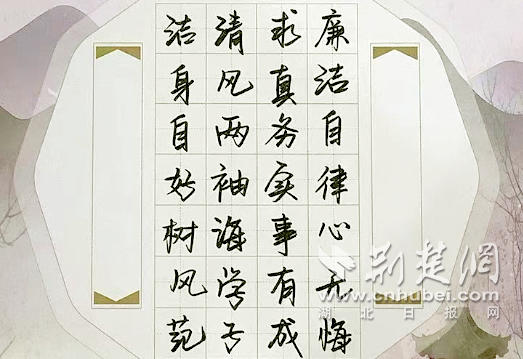 廉洁自律心无悔
求真务实事有成
清风两袖诲学子
洁身自好树风范
荆楚网
www.cnhubei.com
湖北日报网